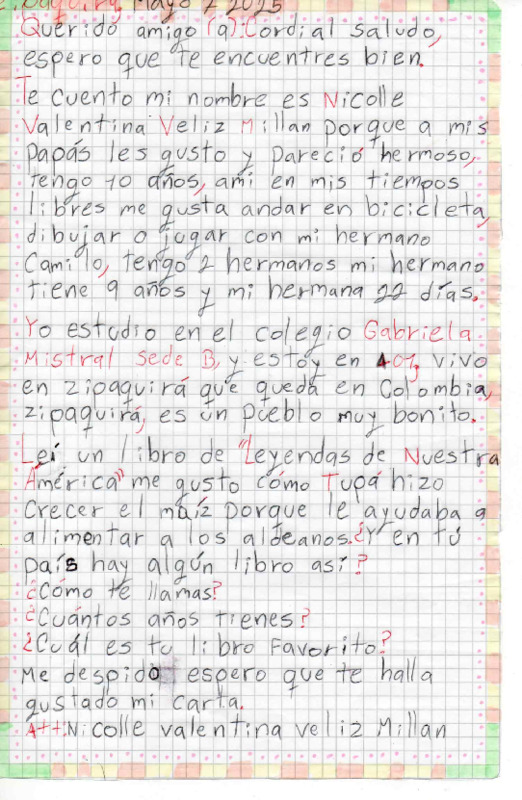 Zipaquirá, Mayo 2 2025
Querido amigo (a): Cordial saludo,
espero que te encuentres bien.
Te cuento mi nombre es Nicolle
Valentina Veliz Millan porque a mis
papás les gusto y pareció hermoso,
Tengo 10 años, ami en mis tiempos
libres me gusta andar en bicicleta,
dibujar o jugar con mi hermano
Camilo, tengo 2 hermanos mi hermano
tiene 9 años y mi hermana 22 días.
Yo estudio en el colegio Gabriela
Mistral Sede B, y estoy en 401, vivo
en zipaquirá que queda en Colombia,
zipaquirá, es un pueblo muy bonito.
Leí un libro de "Leyendas de Nuestra
América" me gusto cómo Tupá hizo
crecer el maíz porque le ayudaba a
alimentar a los aldeanos. ¿Y en tú
país hay algún libro así?
¿Cómo te llamas?
¿Cuántos años tienes?
¿Cuál es tu libro Favorito?
Me despido espero que te halla
gustado mi carta.
Att: Nicolle valentina veliz Millan